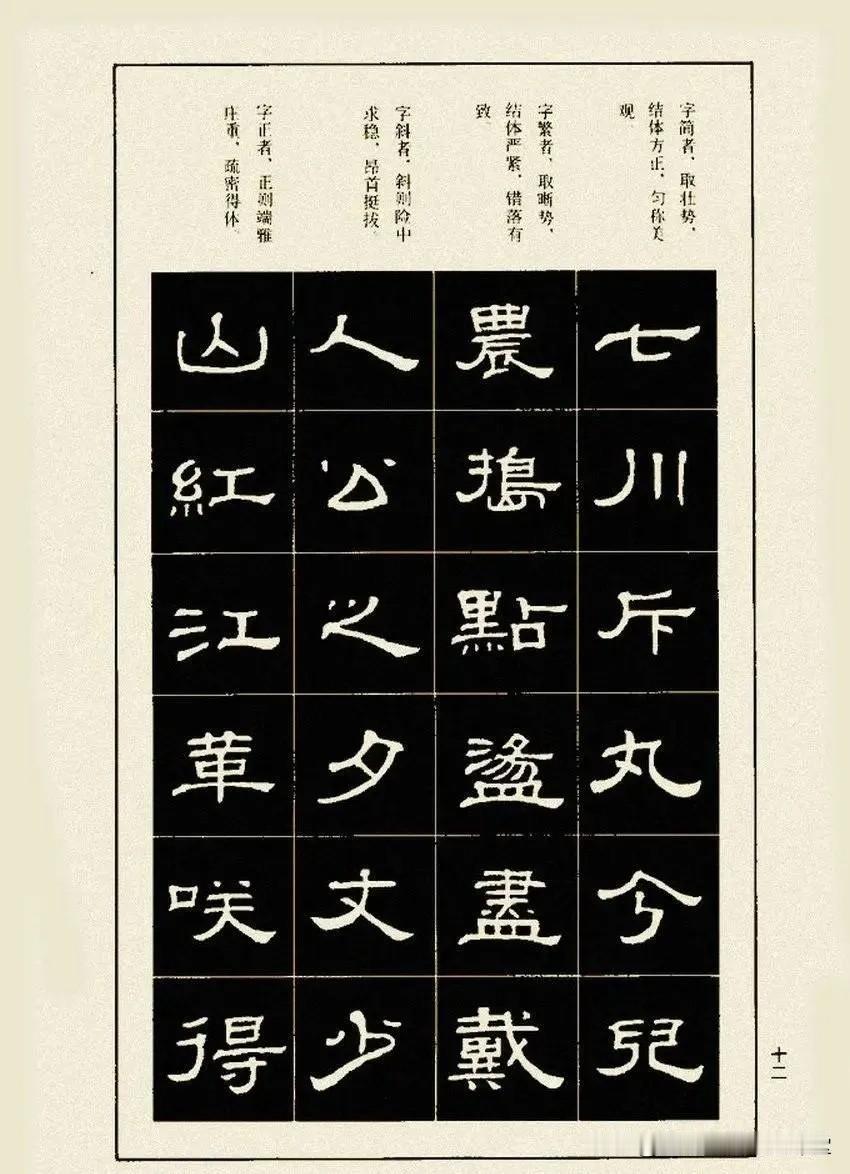 字简者，取壮势，
结体方正，匀称美
观。
字繁者，取晰势，
结体严紧，错落有
致。
字斜者，斜则险中
求稳，昂首挺拔。
字正者，正则端雅
庄重，疏密得体。
七川斥丸今兒
農搗點盪盡戴
人公之夕丈少
山紅江咲得
十二